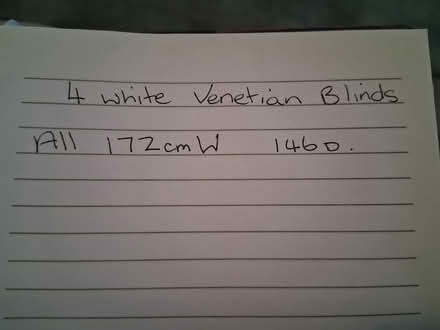 4 white Venetian Blinds
All 172cm W 146D.